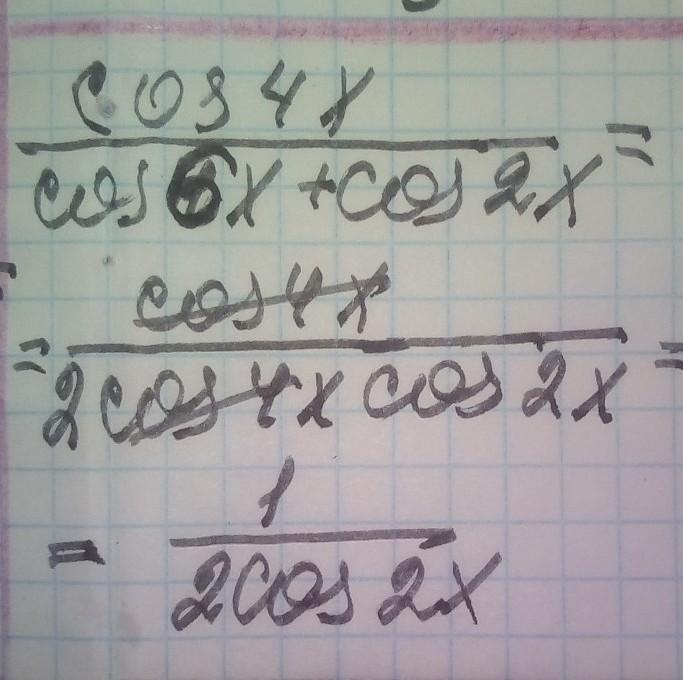 cos 4x
cos 6x + cos 2x =
cos 4x
= 2 cos 4x cos 2x =
1
= 2 cos 2x